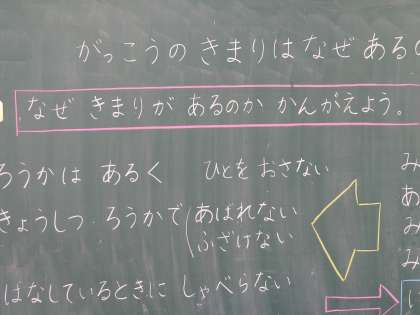 がっこうの きまりは なぜ あるの
なぜ きまりが あるのか かんがえよう。
ろうかは あるく ひとを おさない
きょうしつ ろうかで あばれない
ふざけない
はなしているときに しゃべらない
み
あ
み
み